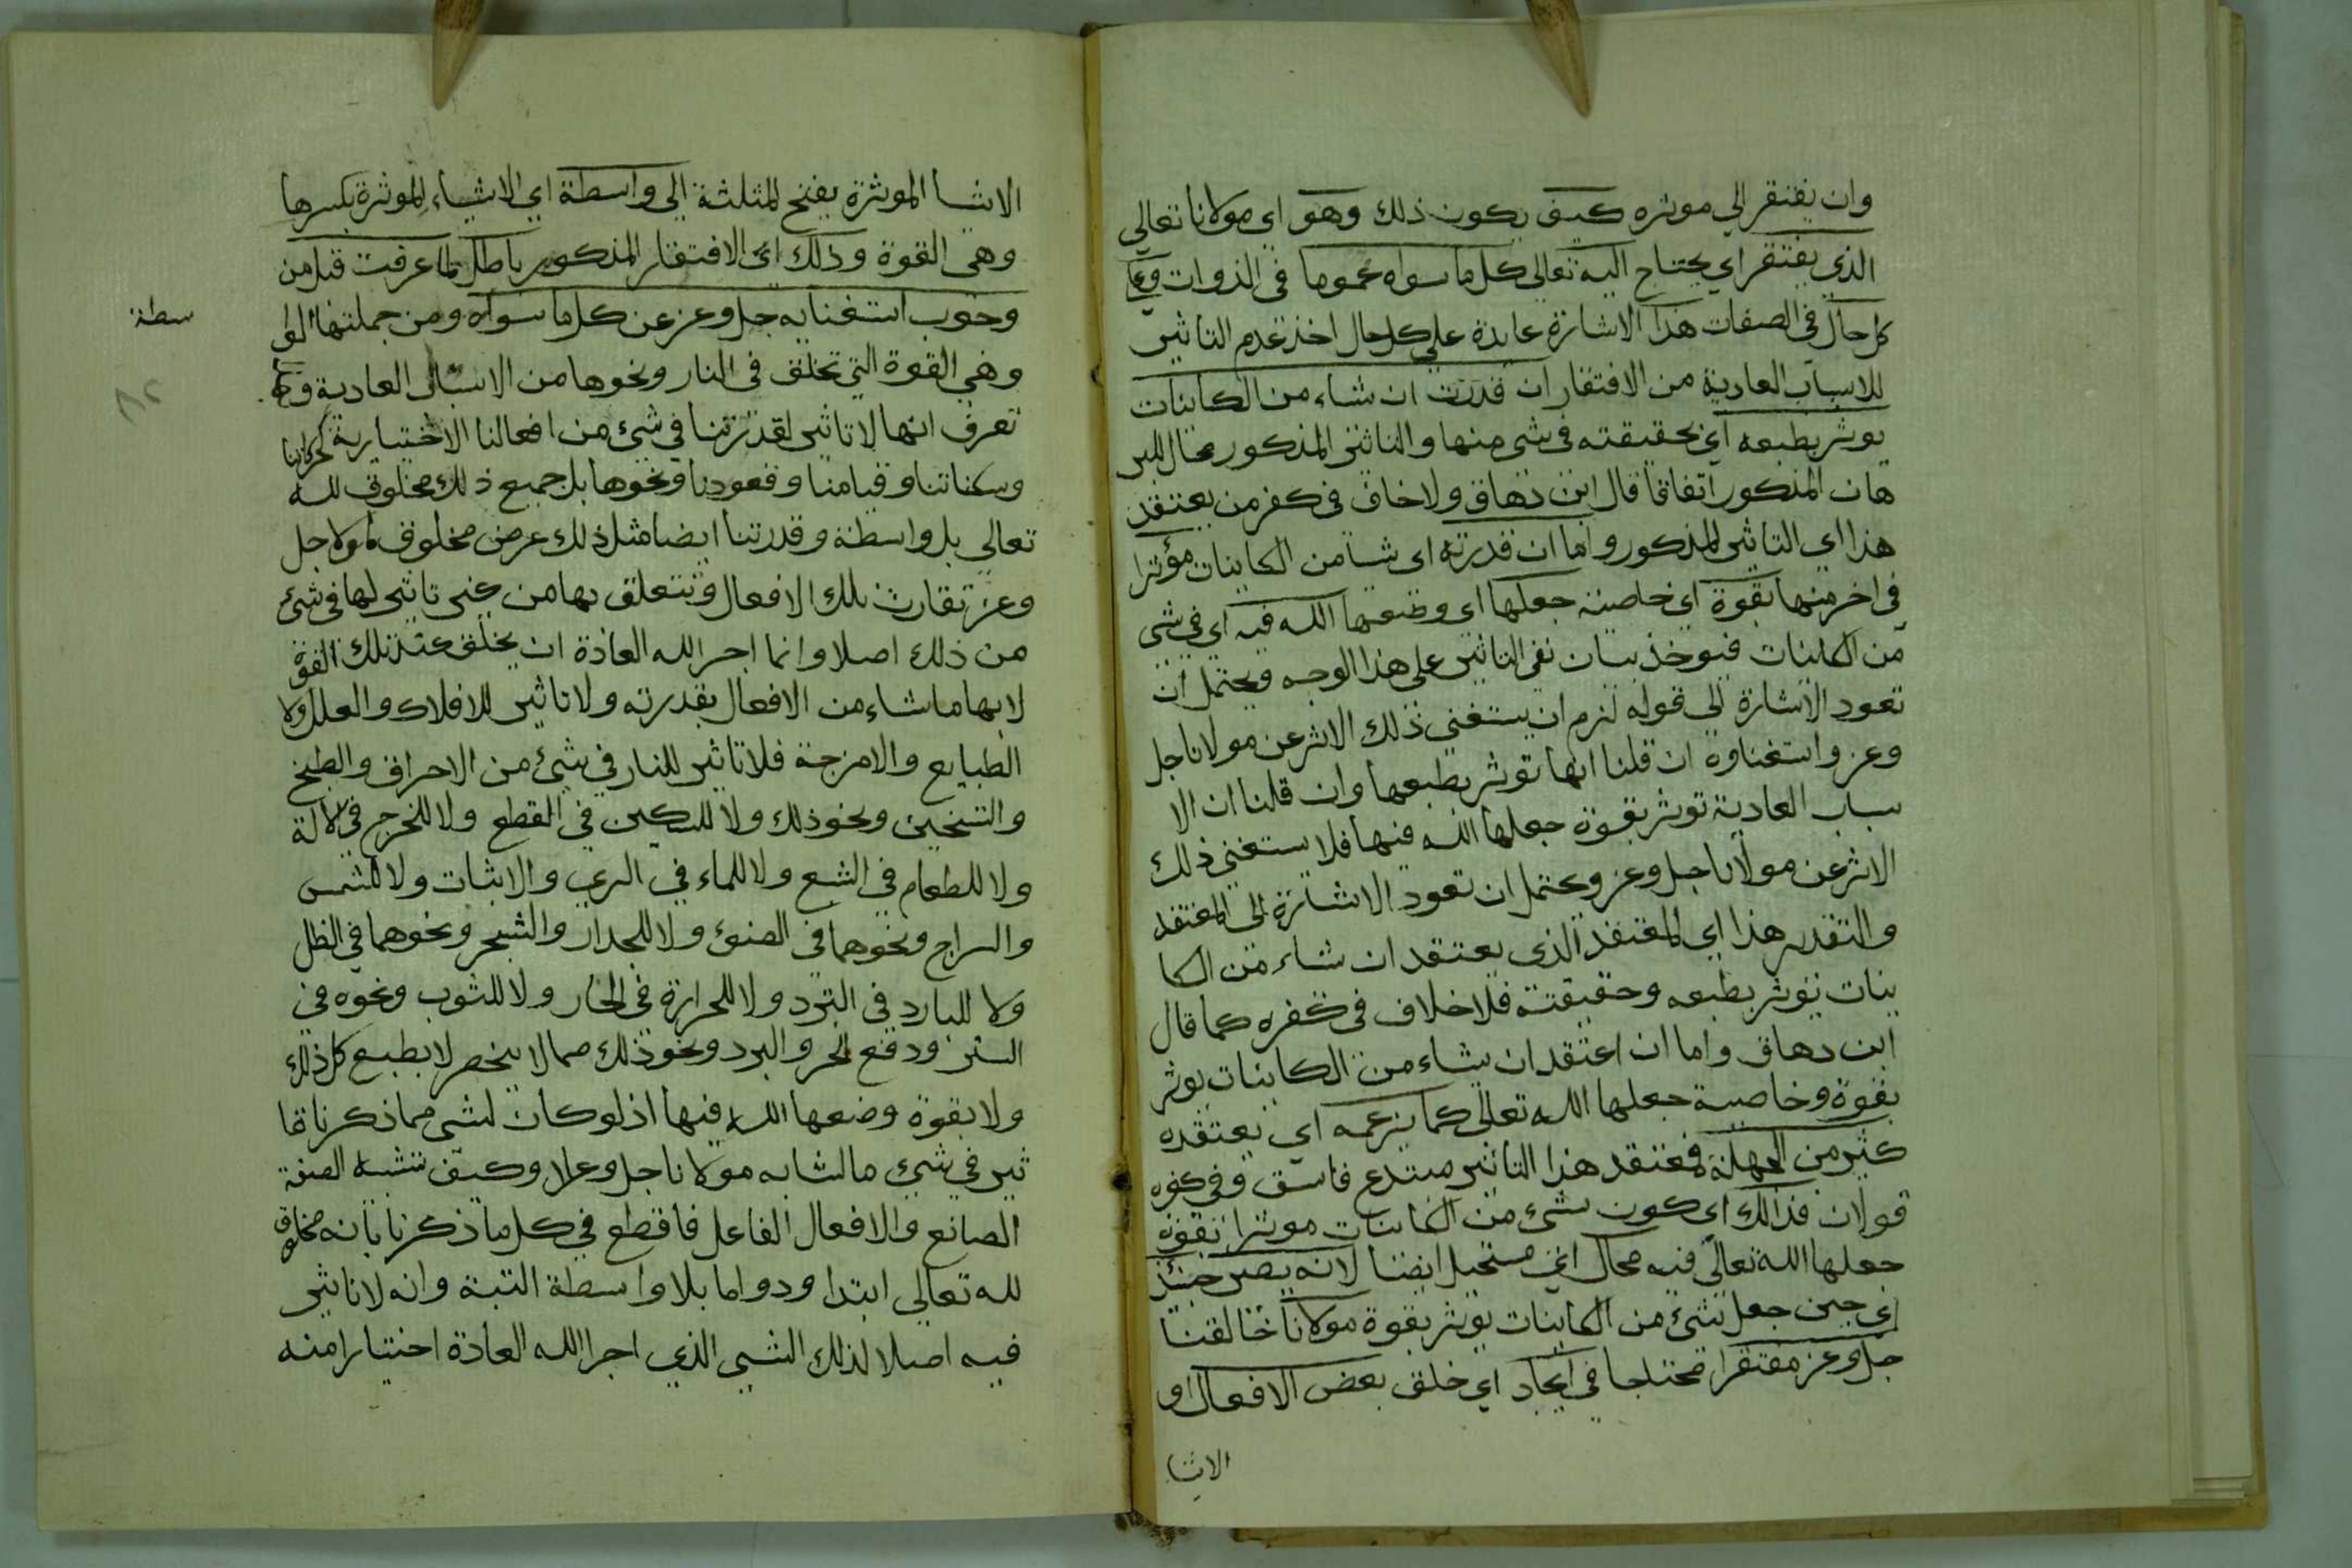 وان يفتقر الي موثره كيف يكون ذلك وهو اي مولانا تعالي
الذي يفتقر اي يحتاج اليه تعالي كل ما سواه عموما في الذوات وعلي
كل حال في الصفات هذا الاشارة عايدة علي كل حال اخذ عدم التاثير
للاسباب العادية من الافتقار ان قدرت ان شاء من الكاينات
يوثر بطبعه اي بحقيقته في شي منها والتاثير المذكور محال للبر
هان المذكور اتفاقا قال ابن دهاق ولا خاف في كفر من يعتقد
هذا اي التاثير المذكور واما ان قدرته اي شيا من الكاينات مؤثرا
في اخر منها بقوة اي خاصية جعلها اي وضعها الله فيه اي في شي
من الكاينات فيوخذ بيان نفي التاثير علي هذا الوجه ويحتمل ان
تعود الاشارة الي قوله لزم ان يستغني ذلك الاثر عن مولانا جل
وعز واستغناوه ان قلنا انها توثر بطبعها وان قلنا ان الا
سباب العادية توثر بقوة جعلها الله فيها فلا يستغني ذلك
الاثر عن مولانا جل وعز ويحتمل ان تعود الاشارة الي المعتقد
والتقدير هذا اي المعتقد الذي يعتقد ان شاء من الكا
ينات توثر بطبعه وحقيقته فلا خلاف في كفره كما قال
ابن دهاق واما ان اعتقد ان شاء من الكاينات يوثر
بقوة وخاصية جعلها الله تعالي كما يزعمه اي يعتقده
كثير من الجهلة فمعتقد هذا التاثير مبتدع فاسق وفي كفره
قولان فذالك اي كون شئ من الكاينات موثرا بقوة
جعلها الله تعالي فيه محال اي مستحيل ايضا لانه يصير حينئذ
اي حين جعل شئ من الكاينات يوثر بقوة مولانا خالقنا
جل وعز مفتقرا محتاجا في ايجاد اي خلق بعض الافعال او
الاشا
الاشا الموثرة بفتح المثلثة الي واسطة اي الاشياء الموثرة بكسرها
وهي القوة وذلك اي الافتقار المذكور باطل لما عرفت قبل من
وجوب استغنايه جل وعز عن كل ما سواه ومن جملتها الوا
سطة
وهي القوة التي تخلق في النار ونحوها من الاسباب العادية
تعرف انها لا تاثير لقدرتنا في شئ من افعالنا الاختيارية كحركاتنا
وسكناتنا وقيامنا وقعودنا ونحوها بل جميع ذلك مخلوق لله
تعالي بل واسطة وقدرتنا ايضا مثل ذلك عرض مخلوق لمولا جل
وعز تقارن تلك الافعال وتتعلق بها من غير تاثير لها في شئ
من ذلك اصلا وانما اجر الله العادة ان يخلق عند تلك القوة
لا بها ما شاء من الافعال بقدرته ولا تاثير للافلاك والعلل ولا
الطبايع والامزجة فلا تاثير للنار في شئ من الاحراق والطبخ
والتسخين ونحو ذلك ولا للسكين في القطع ولا للخرج في لالة
ولا للطعام في الشبع ولا للماء في الري والانبات ولا للشمس
والسراج ونحوهما في الضوئ ولا للجدار والشجر ونحوهما في الظل
ولا للبارد في التبرد ولا للحرارة في الحار ولا للثوب ونحوه في
الستر ودفع الحر والبرد ونحو ذلك مما لا ينحصر لا بطبع كل ذلك
ولا بقوة وضعها الله فيها اذ لو كان لشي مما ذكرنا تا
ثير في شيئ ما لشابه مولانا جل وعلا وكيف تشبه الصنعة
الصانع والافعال الفاعل فاقطع في كل ما ذكرنا بانه مخلوق
لله تعالي ابتدا ودواما بلا واسطة التبة وانه لا تاثير
فيه اصلا لذلك الشيي الذي اجرا الله العادة اختيارا منه